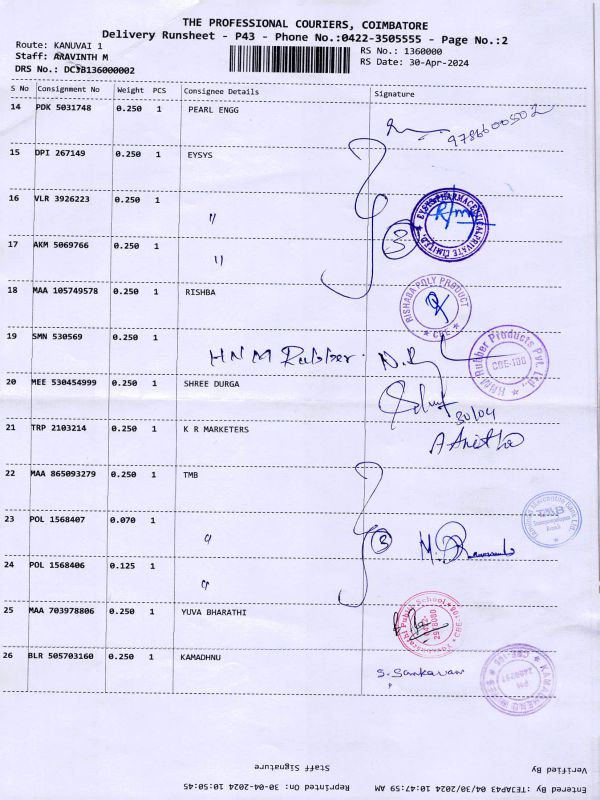 THE PROFESSIONAL COURIERS, COIMBATORE
Delivery Runsheet - P43 - Phone No.:0422-3505555 - Page No.:2
Route: KANUVAI 1
RS No.: 1360000
Staff: ARAVINTH M
RS Date: 30-Apr-2024
DRS No.: DC3B136000002
S No Consignment No Weight PCS Consignee Details Signature
14 PDK 5031748 0.250 1 PEARL ENGG
9786600502
15 DPI 267149 0.250 1 EYSYS
16 VLR 3926223 0.250 1 "
EYSYS PHARMACEUTICAL PRIVATE LIMITED
17 AKM 5069766 0.250 1 "
3
18 MAA 105749578 0.250 1 RISHBA
RISHABA POLY PRODUCT
CBE
19 SMN 530569 0.250 1 HNM Rubber
H&M Rubber Products Pvt. Ltd.,
CBE-108
20 MEE 530454999 0.250 1 SHREE DURGA
30/04
21 TRP 2103214 0.250 1 K R MARKETERS
A Anitha
22 MAA 865093279 0.250 1 TMB
Tamilnad Mercantile Bank Ltd
TMB
23 POL 1568407 0.070 1 "
3
24 POL 1568406 0.125 1 "
25 MAA 703978806 0.250 1 YUVA BHARATHI
Yuvabharathi Public School
CBE-108
26 BLR 505703160 0.250 1 KAMADHNU
S. Sankaran
CBE-108
Verified By
Staff Signature
Entered By: TEJAP43 04/30/2024 10:47:59 AM
Reprinted On: 30-04-2024 10:50:45